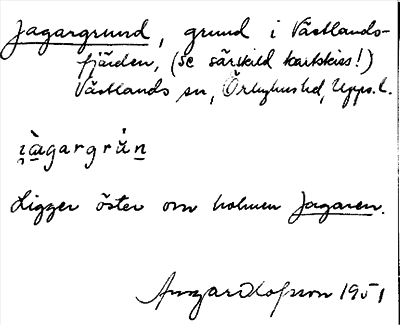 Jagargrund, grund i Västlands-
fjärden, (se särskild kartskiss!)
Västlands sn, Örbyhus hd, Upps. l.
i̯àgargrún
Ligger öster om holmen Jagaren.
Olofsson 1951